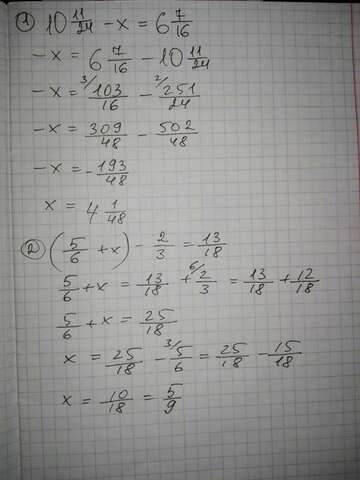 ① 10 11/24 - x = 6 7/16
- x = 6 7/16 - 10 11/24
- x = 3/ 103/16 - 2/ 251/24
- x = 309/48 - 502/48
- x = - 193/48
x = 4 1/48
② (5/6 + x) - 2/3 = 13/18
5/6 + x = 13/18 + 6/ 2/3 = 13/18 + 12/18
5/6 + x = 25/18
x = 25/18 - 3/ 5/6 = 25/18 - 15/18
x = 10/18 = 5/9